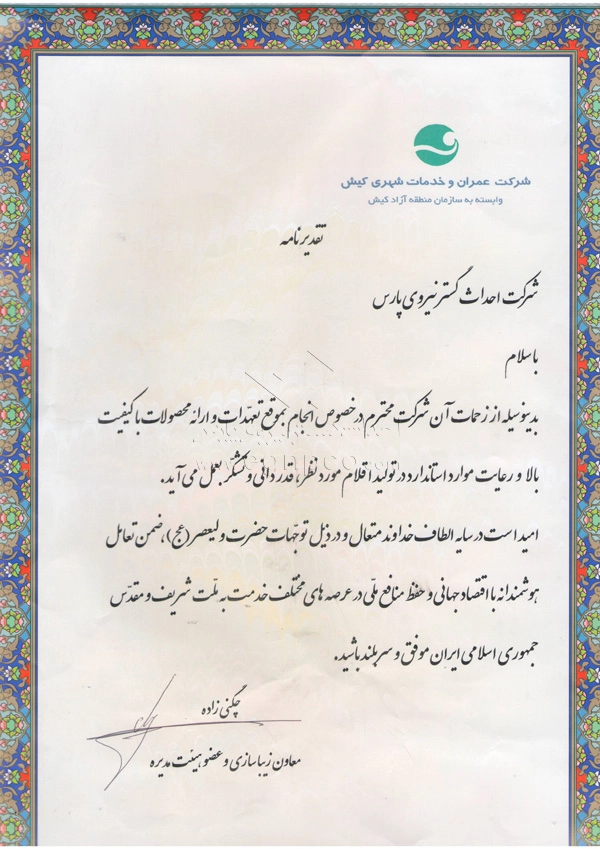 شرکت عمران و خدمات شهری کیش
وابسته به سازمان منطقه آزاد کیش
تقدیرنامه
شرکت احداث گستر نیروی پارس
باسلام
بدینوسیله از زحمات آن شرکت محترم در خصوص انجام بموقع تعهّدات و ارائه محصولات با کیفیت
بالا و رعایت موارد استاندارد در تولید اقلام مورد نظر، قدردانی و تشکر بعمل می آید.
امید است در سایه الطاف خداوند متعال و در ذیل توجّهات حضرت ولیعصر (عج)، ضمن تعامل
هوشمندانه با اقتصاد جهانی و حفظ منافع ملّی در عرصه های مختلف خدمت به ملّت شریف و مقدّس
جمهوری اسلامی ایران موفق و سربلند باشید.
چگنی زاده
معاون زیباسازی و عضو هیئت مدیره